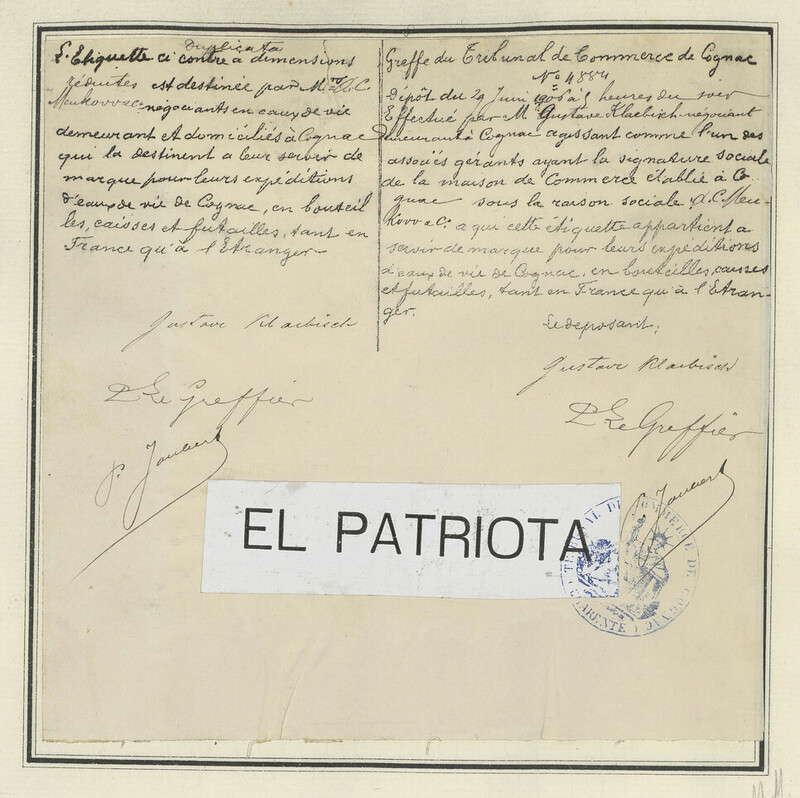 Duplicata
L'Etiquette ci contre a dimensions
réduites est destinée par Mrs A. C.
Meukow & Co négociants en eaux de vie
demeurant et domiciliés à Cognac
qui la destinent a leur servir de
marque pour leurs expéditions
d'eaux de vie de Cognac, en bouteil
les, caisses et futailles, tant en
France qu'à l'Etranger
Gustave Klaebisch
Le Greffier
p. Joubert
Greffe du Tribunal de Commerce de Cognac
No 4884
Dépôt du 29 Juin 1906 à 5 heures du soir
Effectué par Mr Gustave Klaebisch négociant
demeurant à Cognac agissant comme l'un des
associés gérants ayant la signature sociale
de la maison de Commerce établie à Co
gnac sous la raison sociale A. C. Meu
kow & Co. a qui cette étiquette appartient a
servir de marque pour leurs expéditions
d'eaux de vie de Cognac, en bouteilles, caisses
et futailles, tant en France qu'à l'Etran-
ger.
Le déposant,
Gustave Klaebisch
Le Greffier
Joubert
EL PATRIOTA
TRIBUNAL DE COMMERCE DE COGNAC
(CHARENTE)